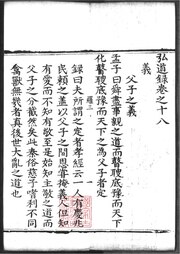 弘道錄卷之十八
義
父子之義
孟子曰舜盡事親之道而瞽瞍底豫瞽瞍底豫而天下
化瞽瞍底豫而天下之為父子者定
錄曰夫所謂之定者孝經云一人有慶兆
民賴之蓋以父子之間恩常掩義人但知
有愛而不知有敬至是始知主敬之道而
父子之分截然矣此秦俗慈子嗜利不同
禽獸無幾者真後世大亂之道也